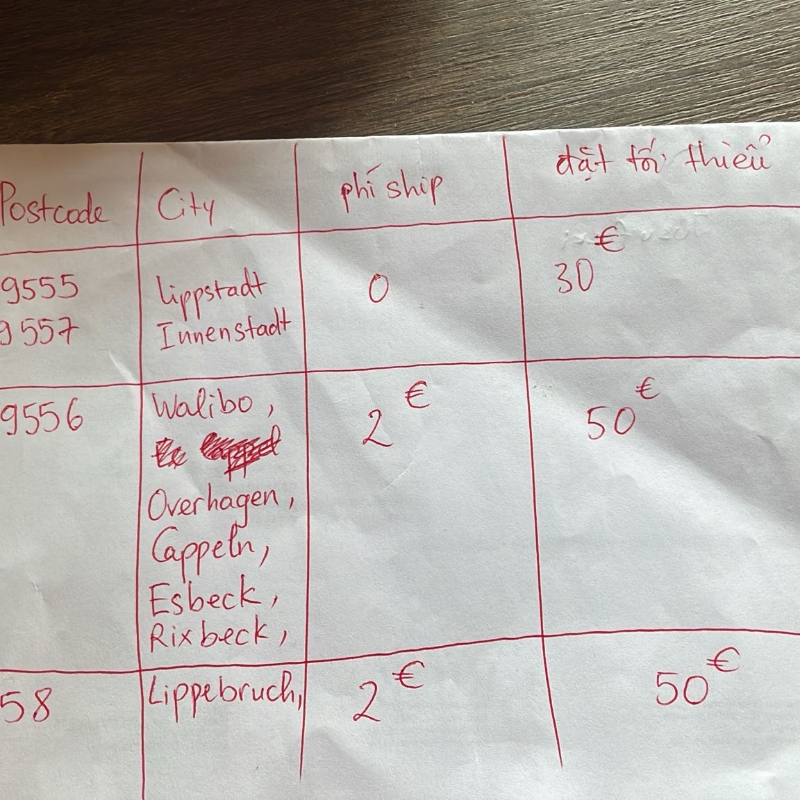 Postcode City phí ship đặt tối thiểu
9555 Lippstadt 0 30€
9557 Innenstadt
9556 Walibo, 2€ 50€
Overhagen,
Cappeln,
Esbeck,
Rixbeck,
58 Lippebruch, 2€ 50€